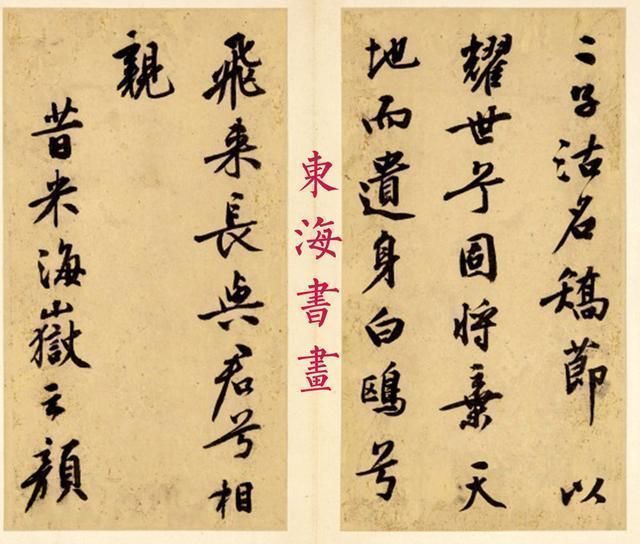 二子沽名矯節以
耀世兮固將棄天
地而遺身白鷗兮
東海書畫
飛來長與君兮相
親
昔米海嶽云顏